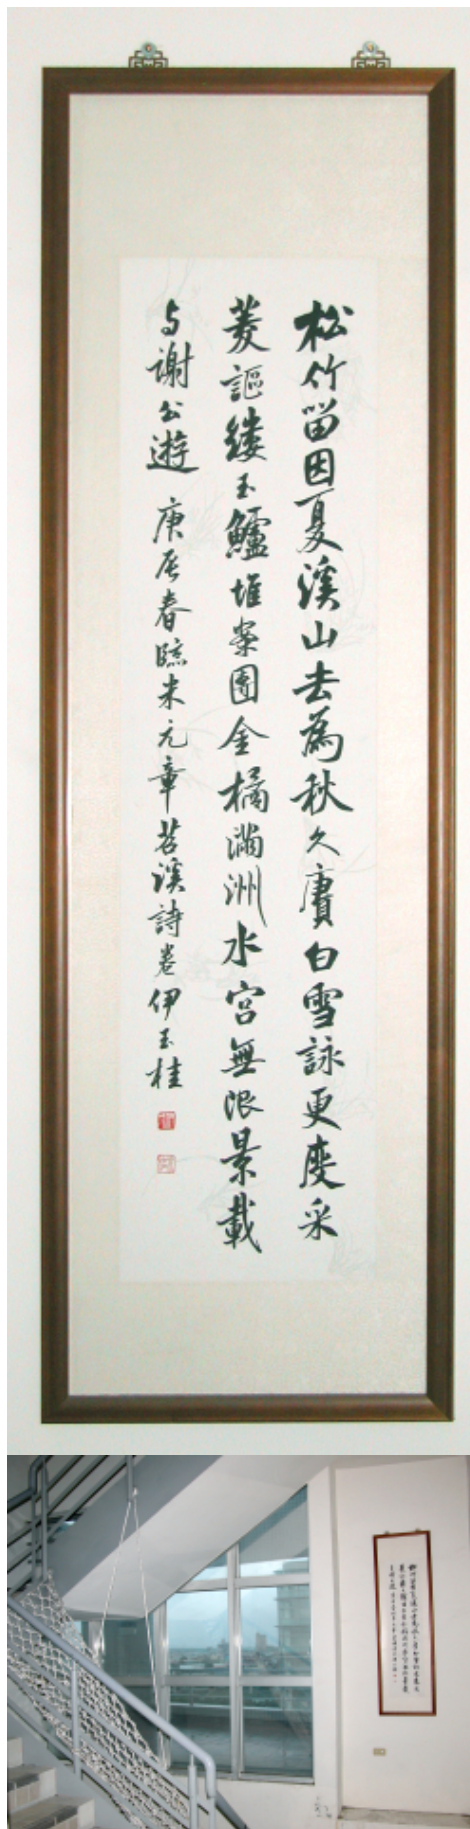 松竹留因夏溪山去為秋久賡白雪詠更度采
菱謳縷玉鱸堆案團金橘滿洲水宮無限景載
与謝公遊 庚辰春臨米元章苕溪詩卷伊玉桂